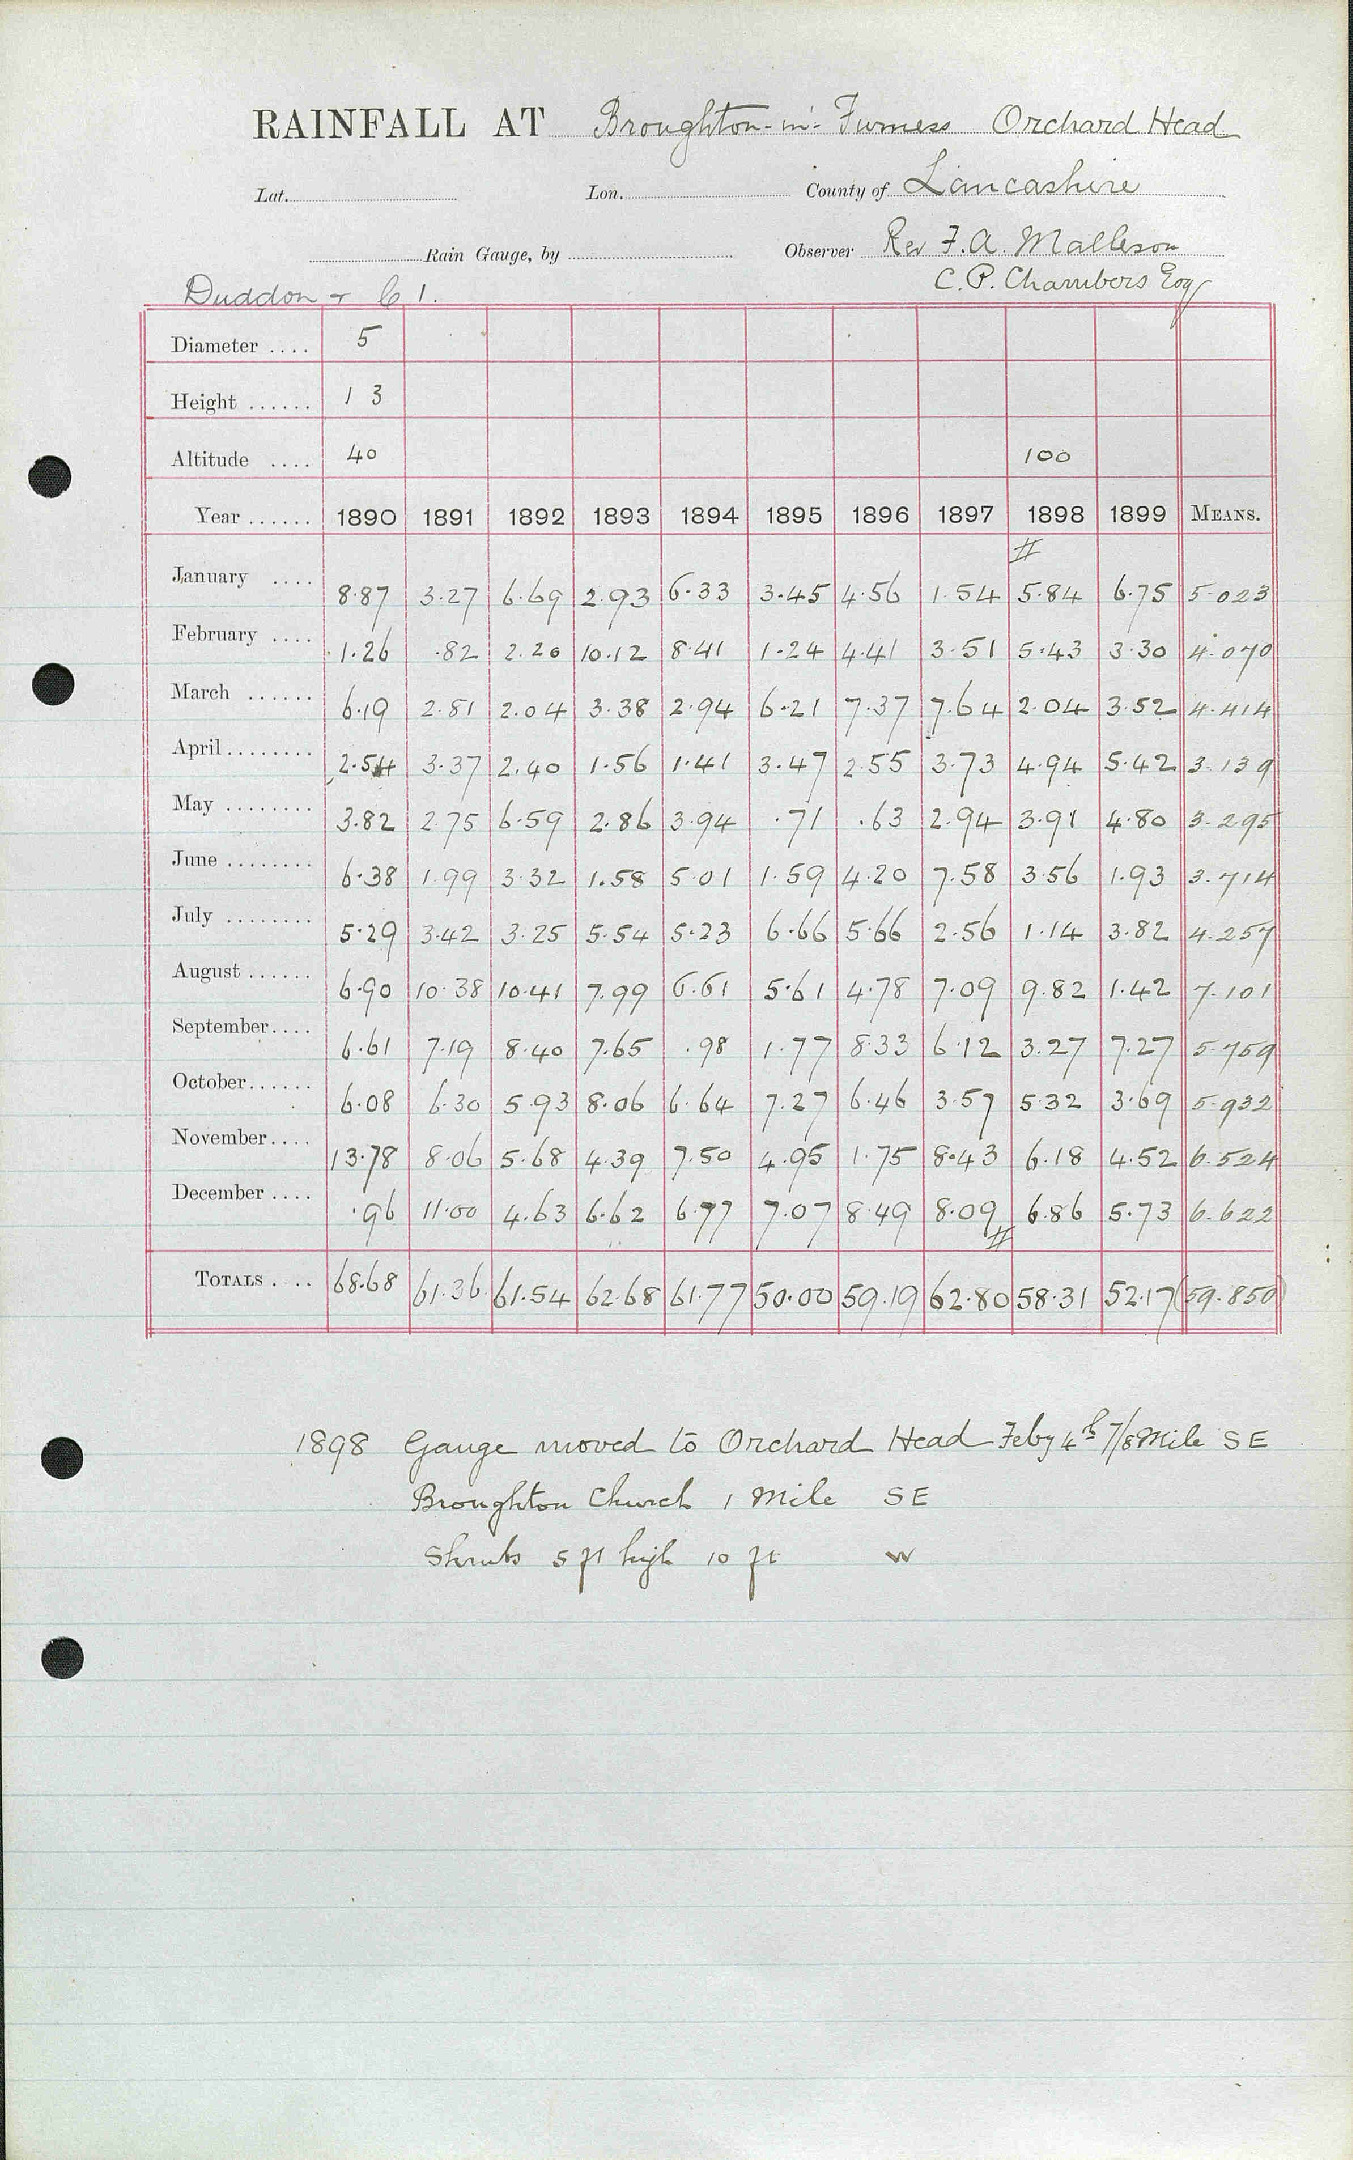 RAINFALL AT Broughton-in-Furness Orchard Head
Lat. Lon. County of Lancashire
Rain Gauge, by Observer Rev F. A. Malleson
Duddon C. P. Chambers Esq
Diameter .... 5
Height ...... 1 3
Altitude .... 40 100
Year ...... 1890 1891 1892 1893 1894 1895 1896 1897 1898 1899 MEANS.
#
January .... 8.87 3.27 6.69 2.93 6.33 3.45 4.56 1.54 5.84 6.75 5.023
February .... 1.26 .82 2.20 10.12 8.41 1.24 4.41 3.51 5.43 3.30 4.070
March ...... 6.19 2.81 2.04 3.38 2.94 6.21 7.37 7.64 2.04 3.52 4.414
April ........ 2.54 3.37 2.40 1.56 1.41 3.47 2.55 3.73 4.94 5.42 3.139
May ........ 3.82 2.75 6.59 2.86 3.94 .71 .63 2.94 3.91 4.80 3.295
June ........ 6.38 1.99 3.32 1.58 5.01 1.59 4.20 7.58 3.56 1.93 3.714
July ........ 5.29 3.42 3.25 5.54 5.23 6.66 5.66 2.56 1.14 3.82 4.257
August ...... 6.90 10.38 10.41 7.99 6.61 5.61 4.78 7.09 9.82 1.42 7.101
September .... 6.61 7.19 8.40 7.65 .98 1.77 8.33 6.12 3.27 7.27 5.759
October ...... 6.08 6.30 5.93 8.06 6.64 7.27 6.46 3.57 5.32 3.69 5.932
November .... 13.78 8.06 5.68 4.39 7.50 4.95 1.75 8.43 6.18 4.52 6.524
December .... .96 11.00 4.63 6.62 6.77 7.07 8.49 8.09 6.86 5.73 6.622
#
TOTALS .... 68.68 61.36 61.54 62.68 61.77 50.00 59.19 62.80 58.31 52.17 (59.850)
1898 Gauge moved to Orchard Head Feby 4th 7/8 Mile SE
Broughton Church 1 Mile SE
Shrubs 5 ft high 10 ft W